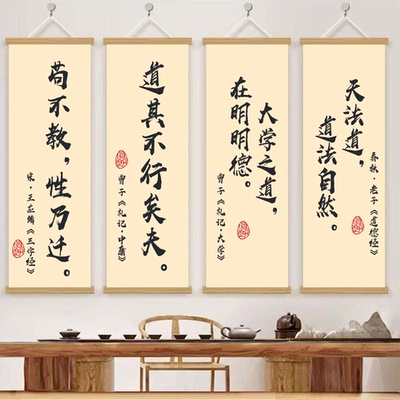 苟不教，性乃迁。
宋·王应麟《三字经》
道其不行矣夫。
曾子《礼记·中庸》
大学之道，
在明明德。
曾子《礼记·大学》
天法道，
道法自然。
春秋·老子《道德经》